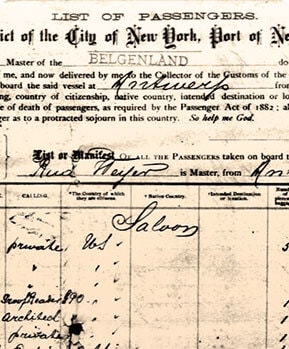 LIST OF PASSENGERS.
ict of the City of New York, Port of Ne
Master of the BELGENLAND do
me, and now delivered by me to the Collector of the Customs of the
board the said vessel at Antwerp
ng, country of citizenship, native country, intended destination or lo
e of death of passengers, as required by the Passenger Act of 1882; al
ger as to a protracted sojourn in this country. So help me God.
List or Manifest OF ALL THE PASSENGERS taken on board th
is Master, from An
CALLING. *The Country of which they are citizens. *Native Country. Intended Destination or Location.
Saloon
private US
private